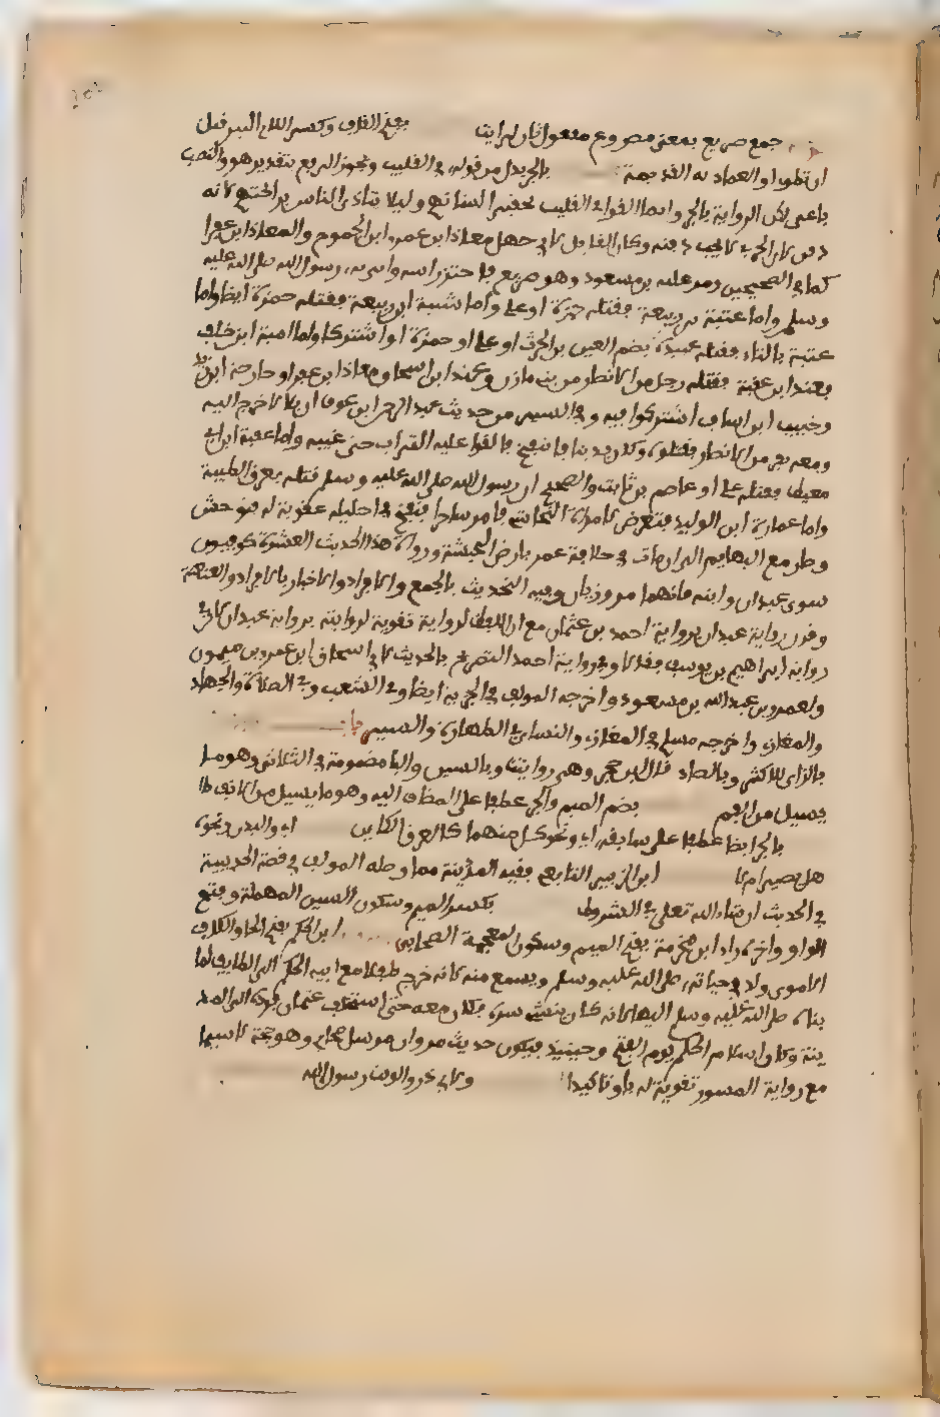 جمع صريع بمعنى مصروع مفعول ثان لرايت بفتح القاف وكسر اللام البير قبل
ان تطوى او العادية القديمة بالجر بدل من قوله في القليب ويجوز الرفع بتقدير هو والنصب
باعنى لكن الرواية بالجر وانما القوا في القليب تحقيرا لشانهم وليلا يتاذى الناس برائحتهم لا انه
دفن لان الحربي لا يجب دفنه وكان القاتل لابي جهل معاذ ابن عمرو ابن الجموح والمعاذ ابن عفرا
كما في الصحيحين ومر عليه بن مسعود وهو صريع فاحتز راسه واتى به رسول الله صلى الله عليه
وسلم واما عتبة بن ربيعة فقتله حمزة او علي واما شيبة ابن ربيعة فقتله حمزة ايضا واما
عتبة بالتاء فقتله عبيدة بضم العين بن الحرث او علي او حمزة او اشتركا واما امية ابن خلف
فعند ابن عقبة فقتله رجل من الانصار من بني مازن وعند ابن اسحاق معاذ ابن عفرا وخارجة ابن زيد
وخبيب ابن اساف اشتركوا فيه وفي السير من حديث عبد الرحمن ابن عوف ان بلالا خرج اليه
ومعه نفر من الانصار فقتلوه وكان بدينا فانتفخ فالقوا عليه التراب حتى غيبه واما عقبة ابن ابي
معيط فقتله علي او عاصم بن ثابت والصحيح ان رسول الله صلى الله عليه وسلم قتله بعرق الظبية
واما عمارة ابن الوليد فتعرض لامراة النجاشي فامر ساحرا فنفخ في احليله عقوبة له فتوحش
وصار مع البهايم الى ان مات في خلافة عمر بارض الحبشة ورواة هذا الحديث العشرة كوفيون
سوى عبدان وابيه فانهما مروزيان وفيه التحديث بالجمع والافراد والاخبار بالافراد والعنعنة
وقرن رواية عبدان برواية احمد بن عثمان مع ان اللفظ لرواية تقوية لروايته برواية عبدان لان في
رواية ابراهيم بن يوسف مقالا وفي رواية احمد التصريح بالحديث لابي اسحاق ابن عمرو بن ميمون
ولعمرو بن عبد الله بن مسعود واخرجه المولف في الجزية ايضا وفي الشعب وفي الصلاة والجهاد
والمغازي واخرجه مسلم في المغازي والنساي في الطهارة والسير باب
بالزاي للاكثر وبالصاد قال ابن حجر وهي روايتنا وبالسين والبا مضمومة في الثلاثة وهو ما
يسيل من الفم بضم الميم والجر عطفا على المضاف اليه وهو ما يسيل من الانف
بالجر ايضا عطفا على سابقه اي ونحو كل منهما كالعرق الكاين اي والبدن ونحوه
هل يضر ام لا ابن الزبير التابعي فقيه المدينة مما وصله المولف في قصة الحديبية
في الحديث ان شاء الله تعلى في الشروط بكسر الميم وسكون السين المهملة وفتح
الواو واخره راء ابن مخرمة بفتح الميم وسكون المعجمة الصحابي ابن الحكم بفتح الحاء والكاف
الاموي ولد في حياته صلى الله عليه وسلم ولم يسمع منه لانه خرج طفلا مع ابيه الحكم الى الطايف لما
نفاه صلى الله عليه وسلم اليها لانه كان يفشي سره فكان معه حتى استخلف عثمان فرده الى المد
ينة وكان اسلام الحكم يوم الفتح وحينئذ فيكون حديث مروان مرسل صحابي وهو حجة لاسيما
مع رواية المسور تقوية له وتاكيدا ولابي ذر والوقت رسول الله